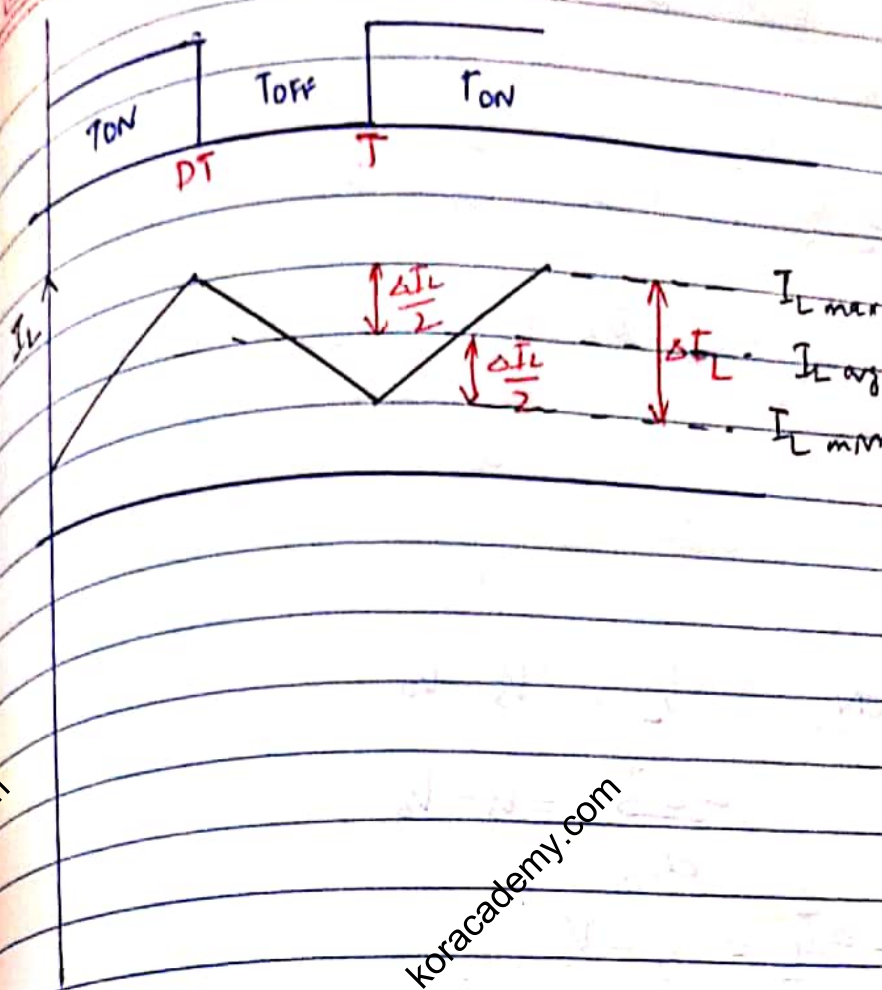 TON TOFF TON
DT T
IL
ΔIL/2
IL max
ΔIL/2
ΔIL
IL avg
IL min
koracademy.com